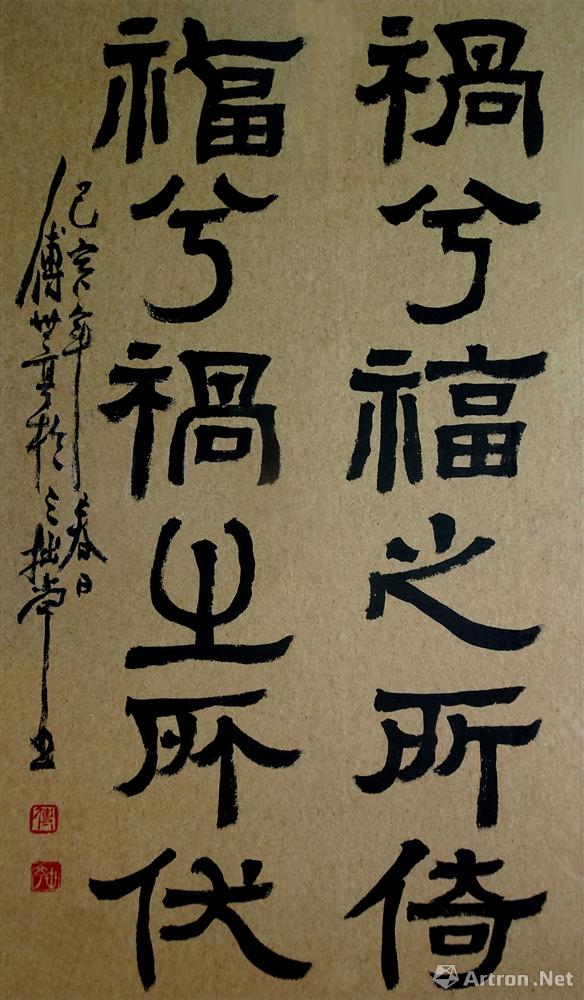 禍兮福之所倚
福兮禍之所伏
己亥年春日
傅世亨於三拙堂
Artron.Net